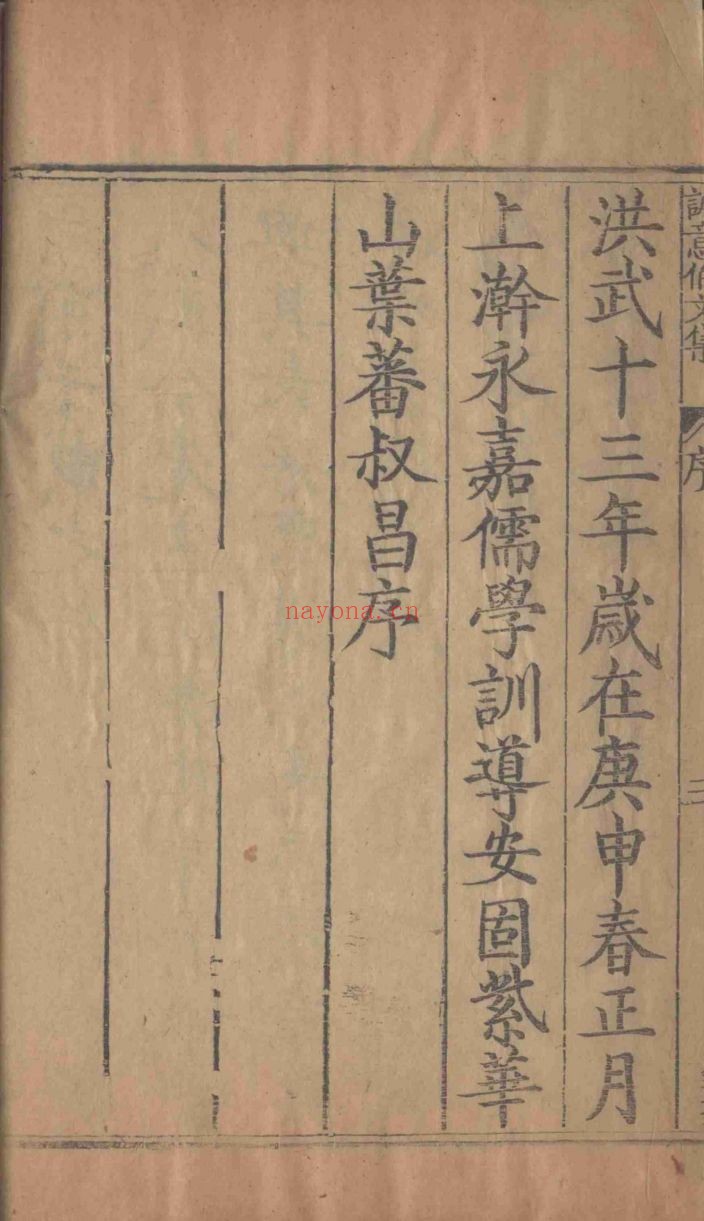 誠意伯文集 序 三
洪武十三年歲在庚申春正月
上澣永嘉儒學訓導安固紫華
山葉蕃叔昌序
nayona.cn